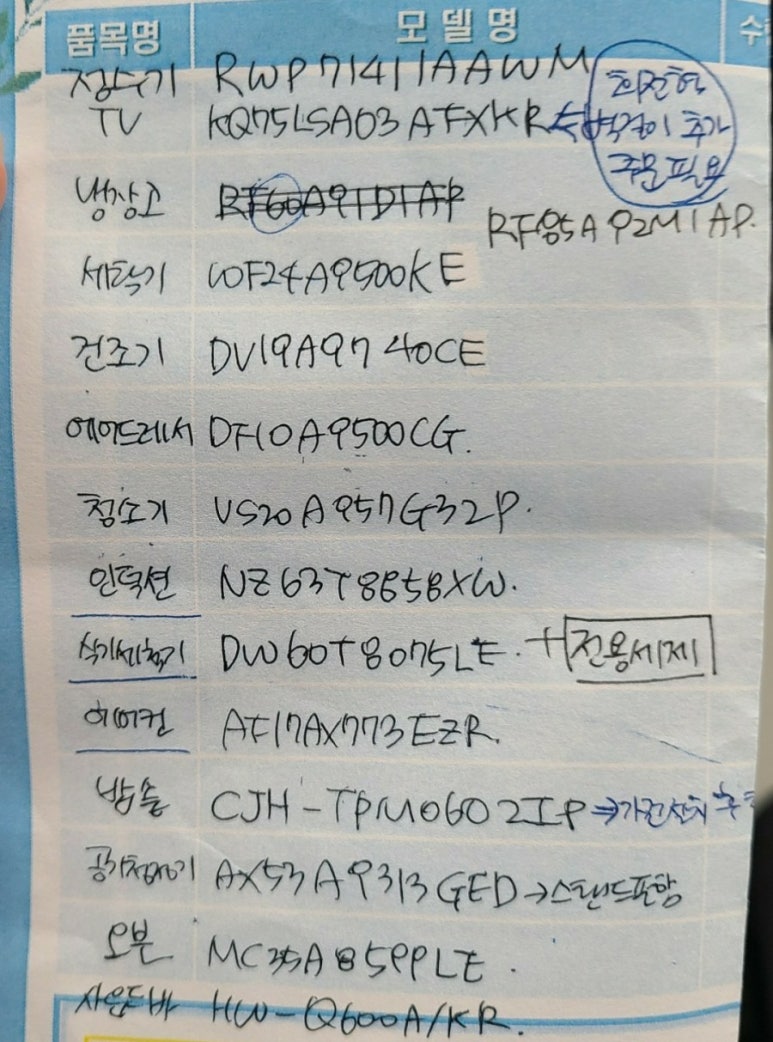 품목명 모델명 수
정수기 RWP71411AAWM 회전형
TV KQ75LSA03AFXKR 벽걸이 추가
주문필요
냉장고 RF60A91D1AP
RF85A92M1AP.
세탁기 WF24A9500KE
건조기 DV19A9740CE
에어드레서 DF10A9500CG.
청소기 VS20A957G32P.
인덕션 NZ63T8858XW.
식기세척기 DW60T8075LE. + 전용세제
에어컨 AF17AX773EZR.
밥솥 CJH-TPM0602IP →가전설치 후
공기청정기 AX53A9313GED→스탠드포함
오븐 MC35A8599LE.
사운드바 HW-Q600A/KR.